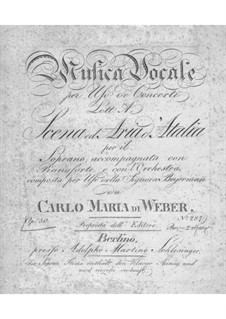 Musica Vocale
per Uso de Concerto
Lett. A
Scena ed Aria d'Atalia
per il
Soprano, accompagnata con
Pianoforte e con l'Orchestra,
composta per Uso della Signora Beyermann
da
CARLO MARIA DI WEBER,
Op: 50. No. 287
Proprietà dell' Editore.
Berlino,
presso Adolpho Martino Schlesinger.